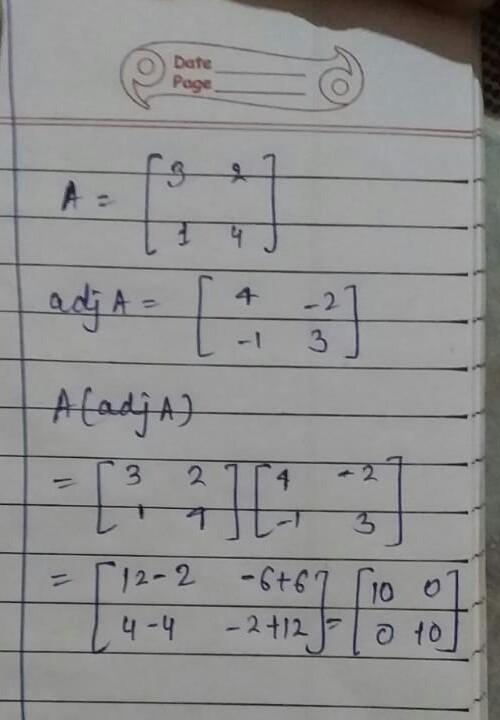 Date
Page
A = [ 3 2
1 4 ]
adj A = [ 4 -2
-1 3 ]
A(adj A)
= [ 3 2
1 4 ] [ 4 -2
-1 3 ]
= [ 12-2 -6+6
4-4 -2+12 ] = [ 10 0
0 10 ]